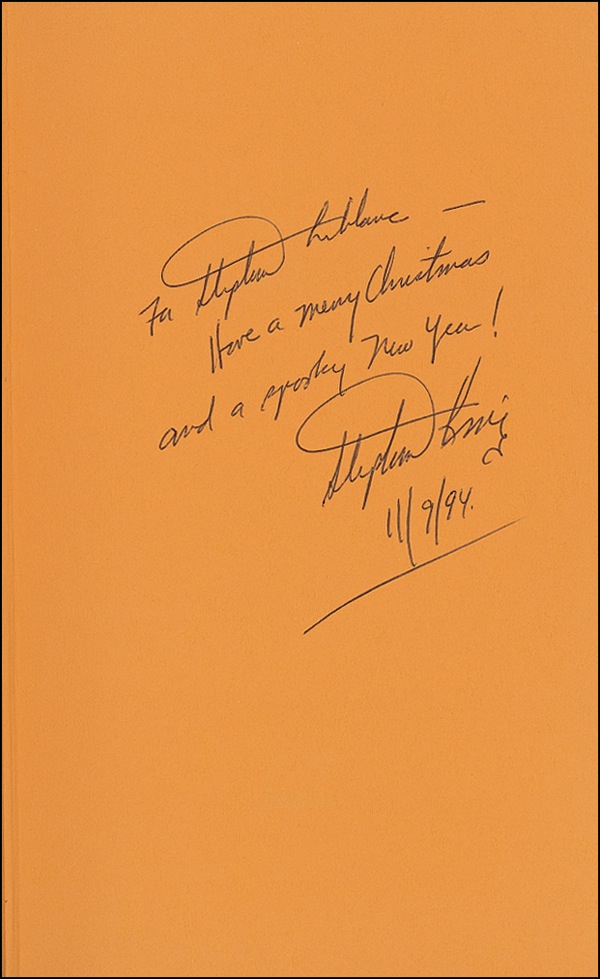 For Stephen Leblanc —
Have a merry Christmas
and a spooky New Year!
Stephen King
11/9/94.